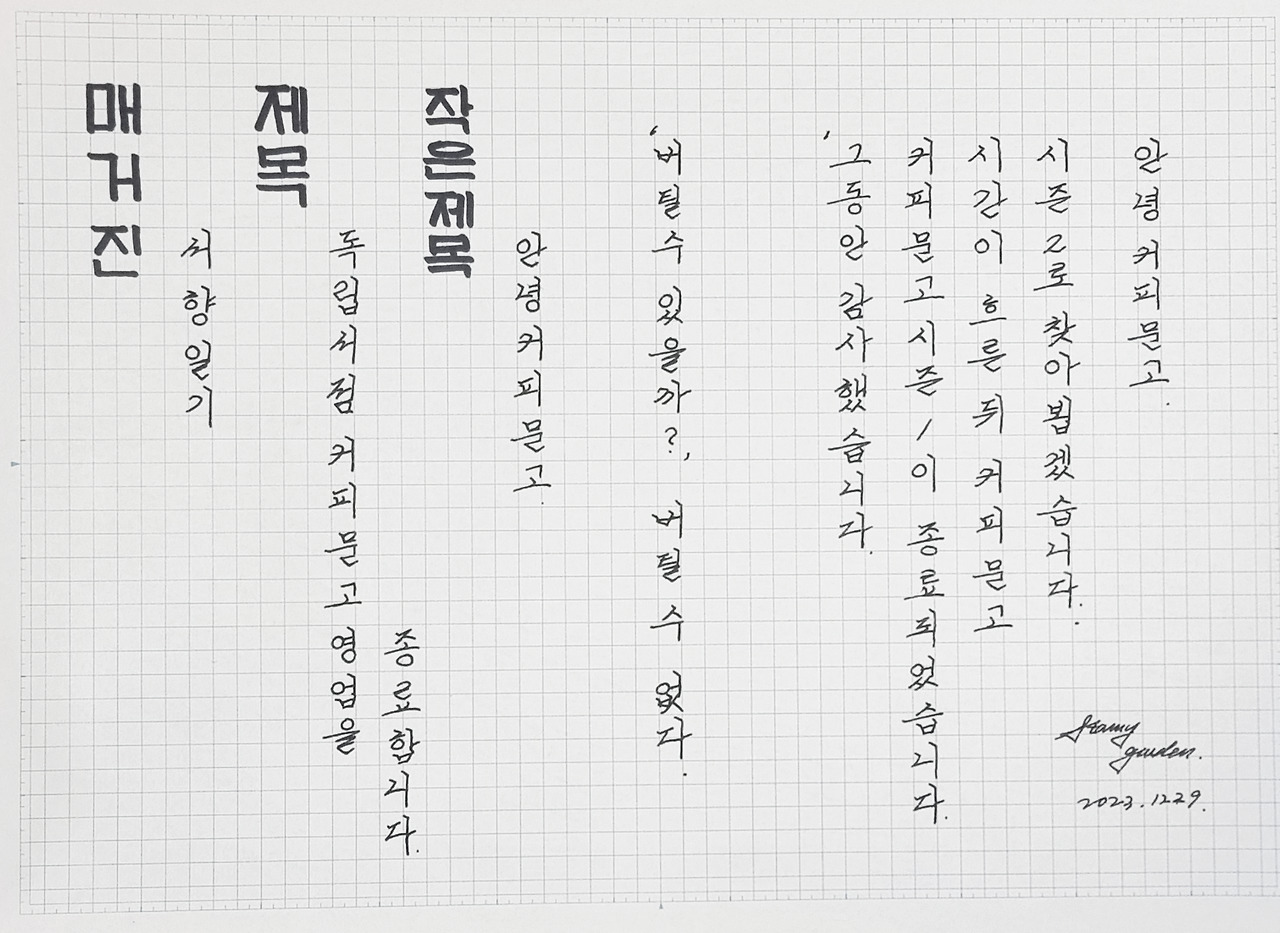 매거진
서향일기
제목
독립서점 커피문고 영업을
종료합니다.
작은제목
안녕 커피문고.
'버틸 수 있을까?' 버틸 수 없다.
'그동안 감사했습니다.
커피문고 시즌 1이 종료되었습니다.
시간이 흐른 뒤 커피문고
시즌 2로 찾아 뵙겠습니다.
안녕 커피문고.
garden.
2023.12.29.